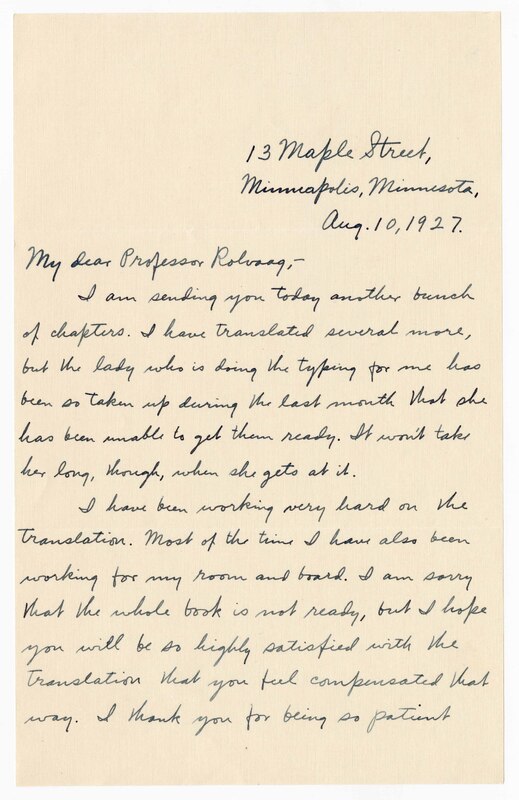 13 Maple Street,
Minneapolis, Minnesota,
Aug. 10, 1927.
My dear Professor Rolvaag,-
I am sending you today another bunch
of chapters. I have translated several more,
but the lady who is doing the typing for me has
been so taken up during the last month that she
has been unable to get them ready. It won't take
her long, though, when she gets at it.
I have been working very hard on the
translation. Most of the time I have also been
working for my room and board. I am sorry
that the whole book is not ready, but I hope
you will be so highly satisfied with the
translation that you feel compensated that
way. I thank you for being so patient